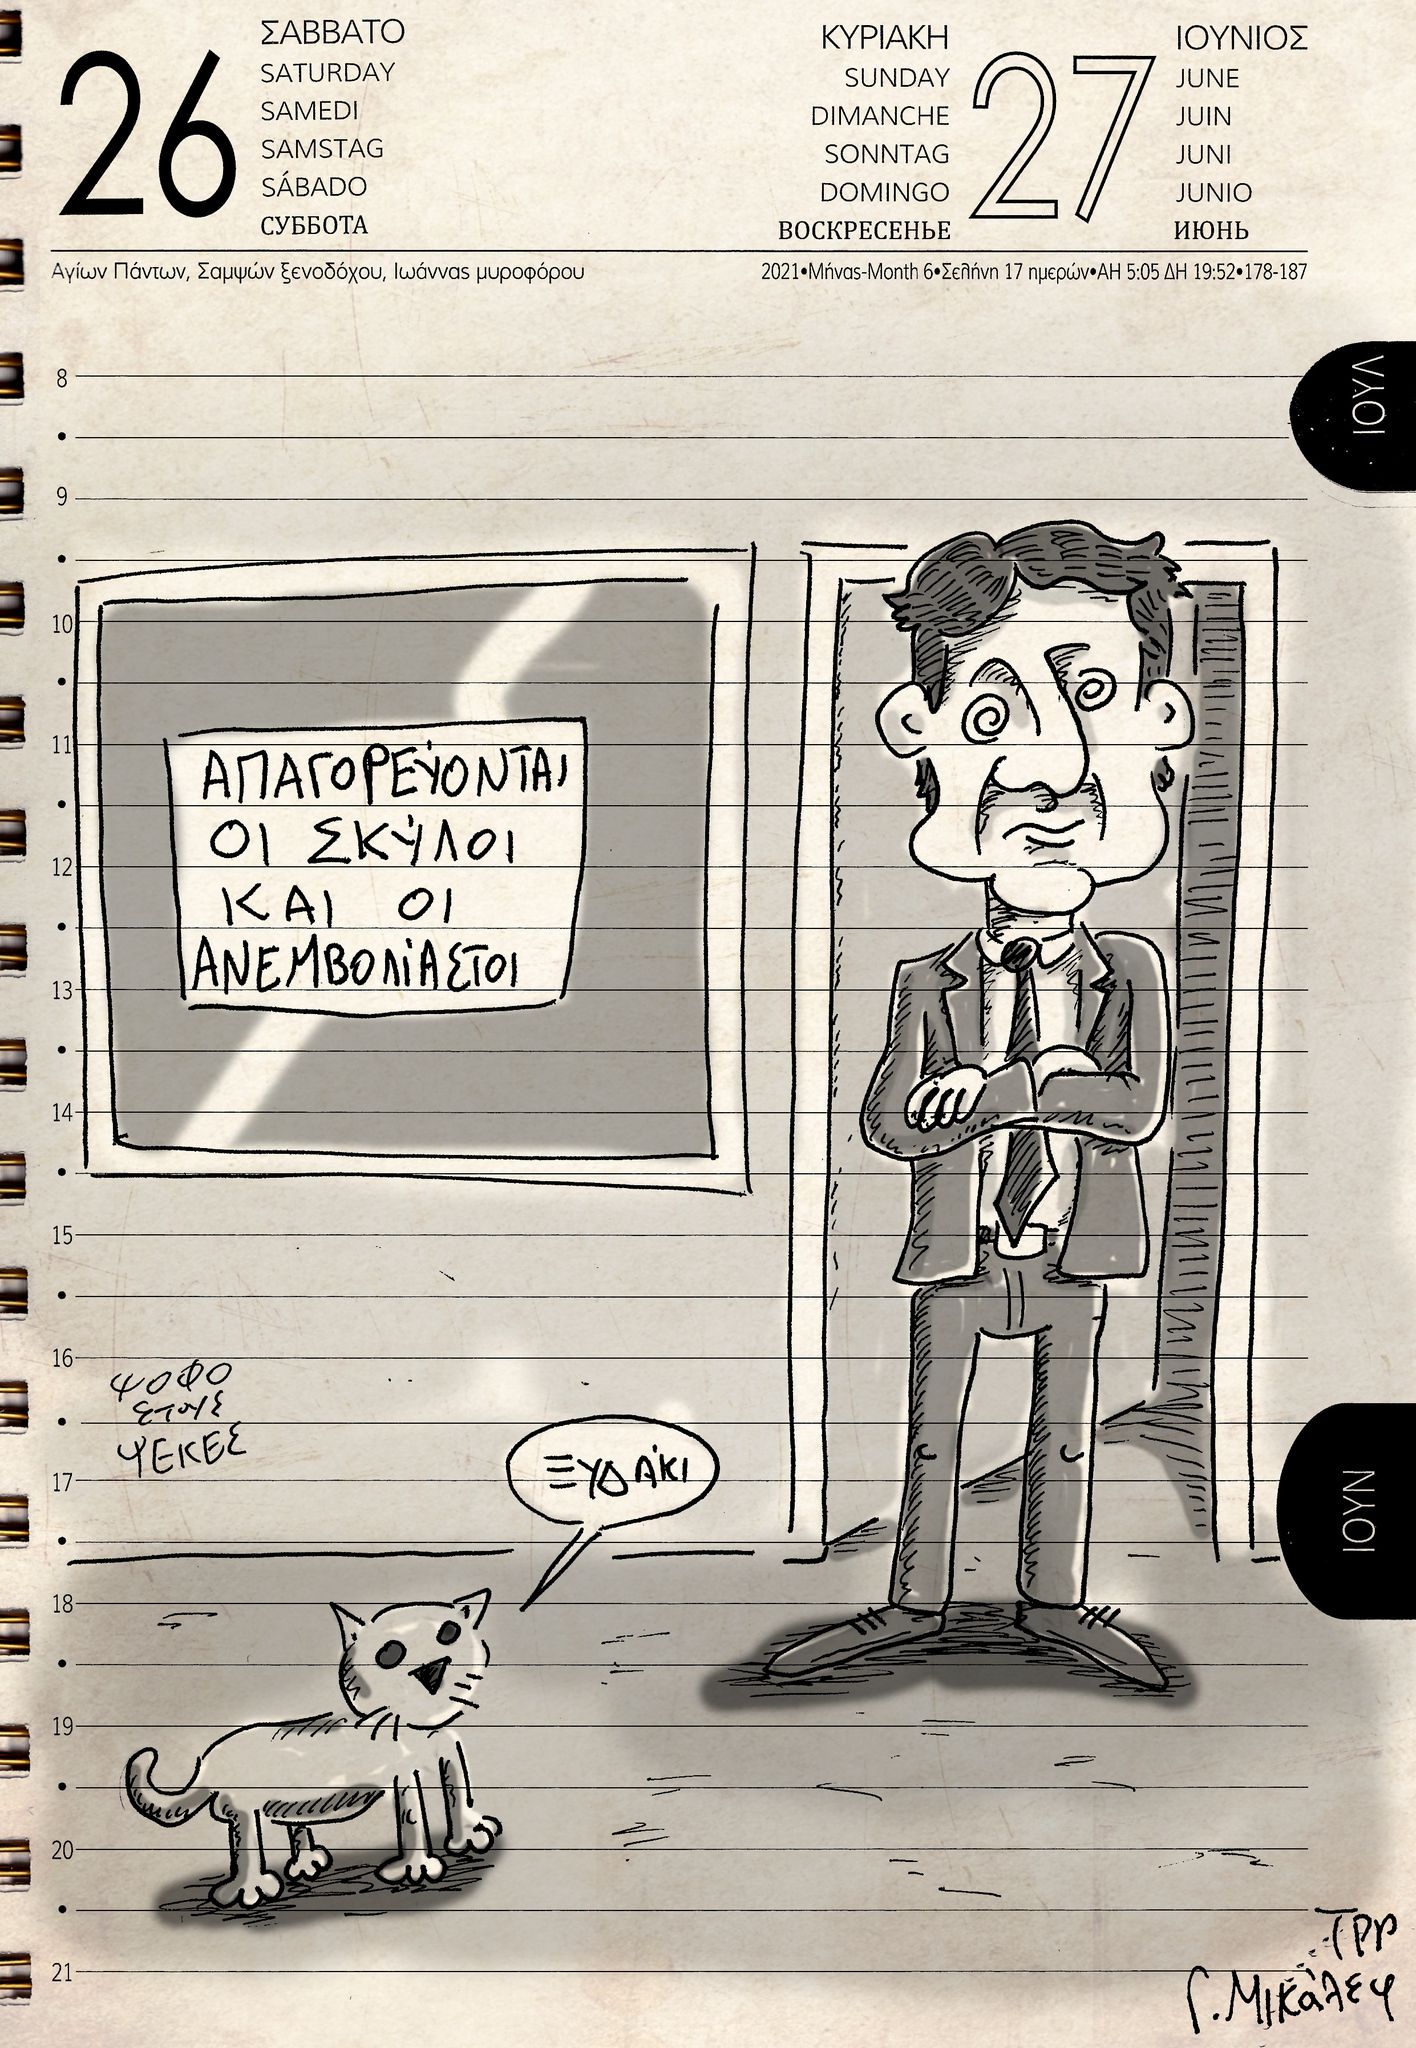 26
ΣΑΒΒΑΤΟ
SATURDAY
SAMEDI
SAMSTAG
SÁBADO
СУББОТА
ΚΥΡΙΑΚΗ
SUNDAY
DIMANCHE
SONNTAG
DOMINGO
ВОСКРЕСЕНЬЕ
27
ΙΟΥΝΙΟΣ
JUNE
JUIN
JUNI
JUNIO
ИЮНЬ
Αγίων Πάντων, Σαμψών ξενοδόχου, Ιωάννας μυροφόρου
2021•Μήνας-Month 6•Σελήνη 17 ημερών•ΑΗ 5:05 ΔΗ 19:52•178-187
ΙΟΥΛ
8
9
10
11
12
13
14
15
16
17
18
19
20
21
ΑΠΑΓΟΡΕΎΟΝΤΑΙ
ΟΙ ΣΚΎΛΟΙ
ΚΑΙ ΟΙ
ΑΝΕΜΒΟΛΊΑΣΤΟΙ
ΨΟΦΟ
ΣΤΟΥΣ
ΨΕΚΕΣ
ΞΥΔΆΚΙ
ΙΟΥΝ
ΤΡΡ
Γ. ΜΙΚΆΛΕΦ